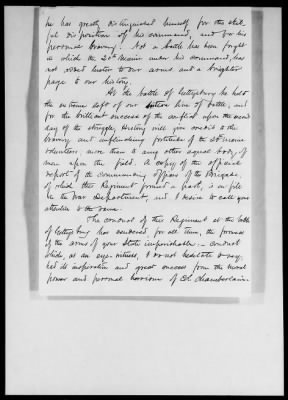 he has greatly distinguished himself for the skil-
ful disposition of his command, and for his
personal bravery. Not a battle has been fought
in which the 20th Maine under his command, has
not added luster to our arms and a brighter
page to our history.
At the battle of Gettysburg he held
the extreme left of our entire line of battle, and
for the brilliant success of the conflict upon the second
day of the struggle, History will give credit to the
bravery and unflinching fortitude of the 20th Maine
Volunteers, more than to any other equal body of
men upon the field. A copy of the official
report of the commanding officer of the Brigade,
of which this Regiment formed a part, is on file
in the War Department, and I desire to call your
attention to the same.
The conduct of this Regiment at the battle
of Gettysburg has rendered, for all time, the prowess
of the arms of your State imperishable. - Conduct
which, as an eye-witness, I do not hesitate to say,
had its inspiration and great success from the moral
power and personal heroism of Col. Chamberlain.